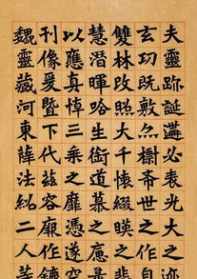 夫靈跡誕遘必表光大之迹
玄功既敷亦標希世之作
雙林改照大千懷綴暎之悲
慧潛暉唅生銜道慕之
以應真悼三乘之靡憑
刊像爰暨下代茲容厥作
魏靈藏河東薛法紹二人等